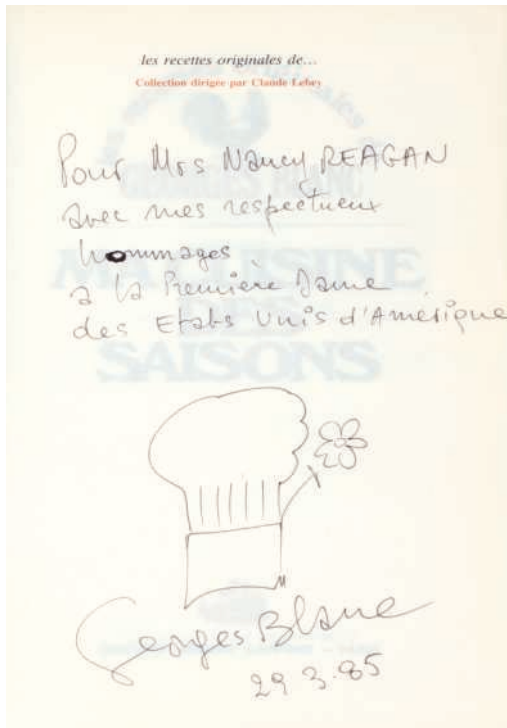 les recettes originales de...
Collection dirigée par Claude Lebey
Pour Mrs Nancy REAGAN
avec mes respectueux
hommages
a la Première Dame
des Etats Unis d'Amérique
MA CUISINE
DES
SAISONS
Georges Blanc
29 3.85